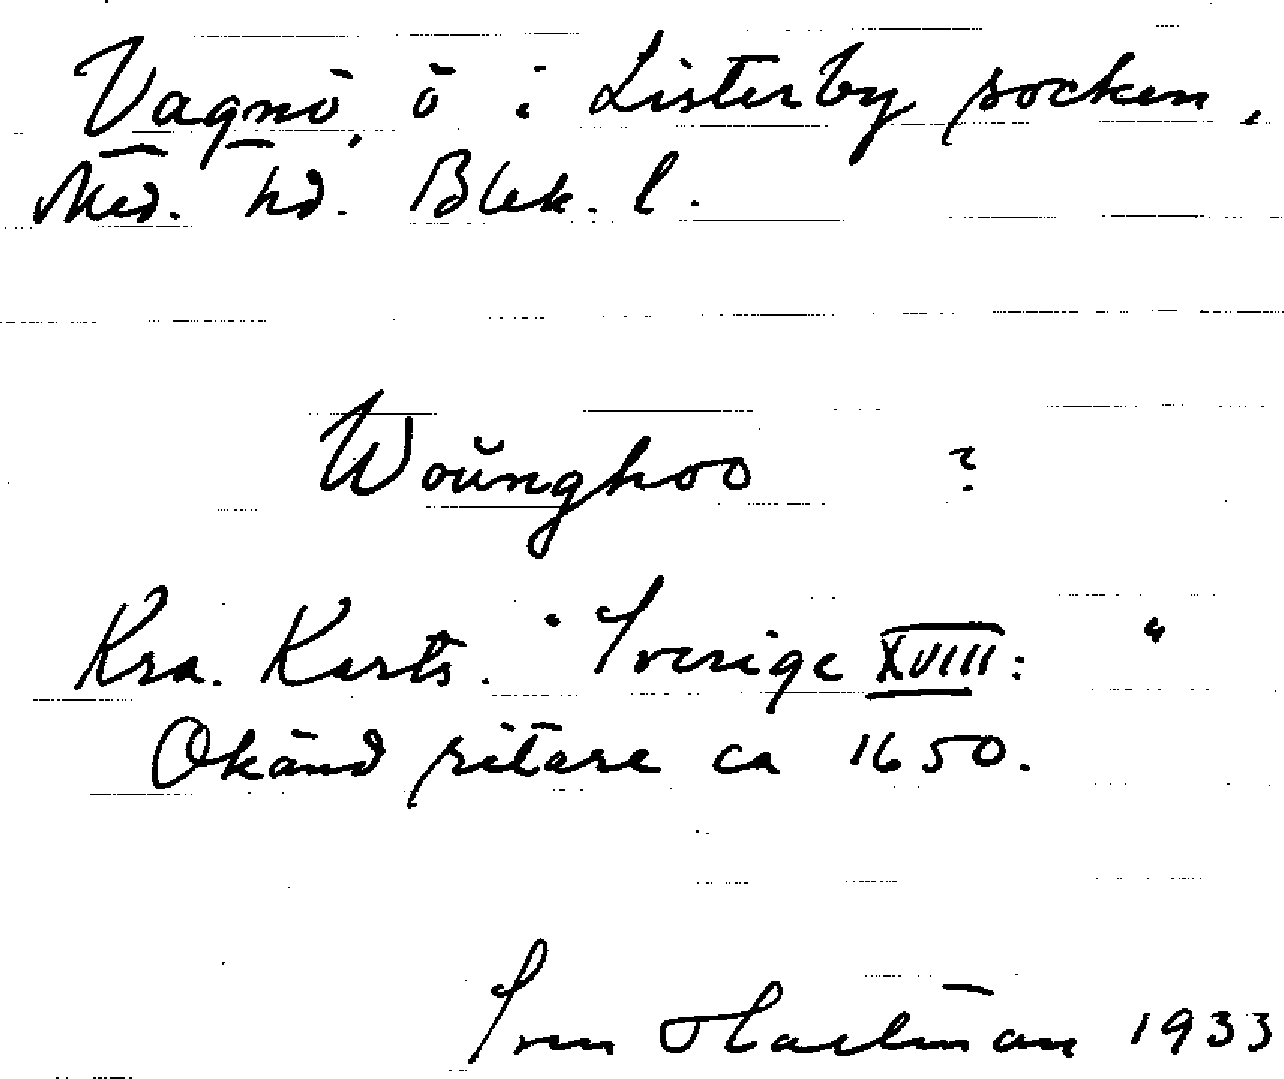 Vagnö, ö i Listerby socken,
Med. hd. Blek. l.
Woŭnghoo ?
Kra. Karts. "Sverige XVIII: "
Okänd ritare ca 1650.
Sven Hallman 1933